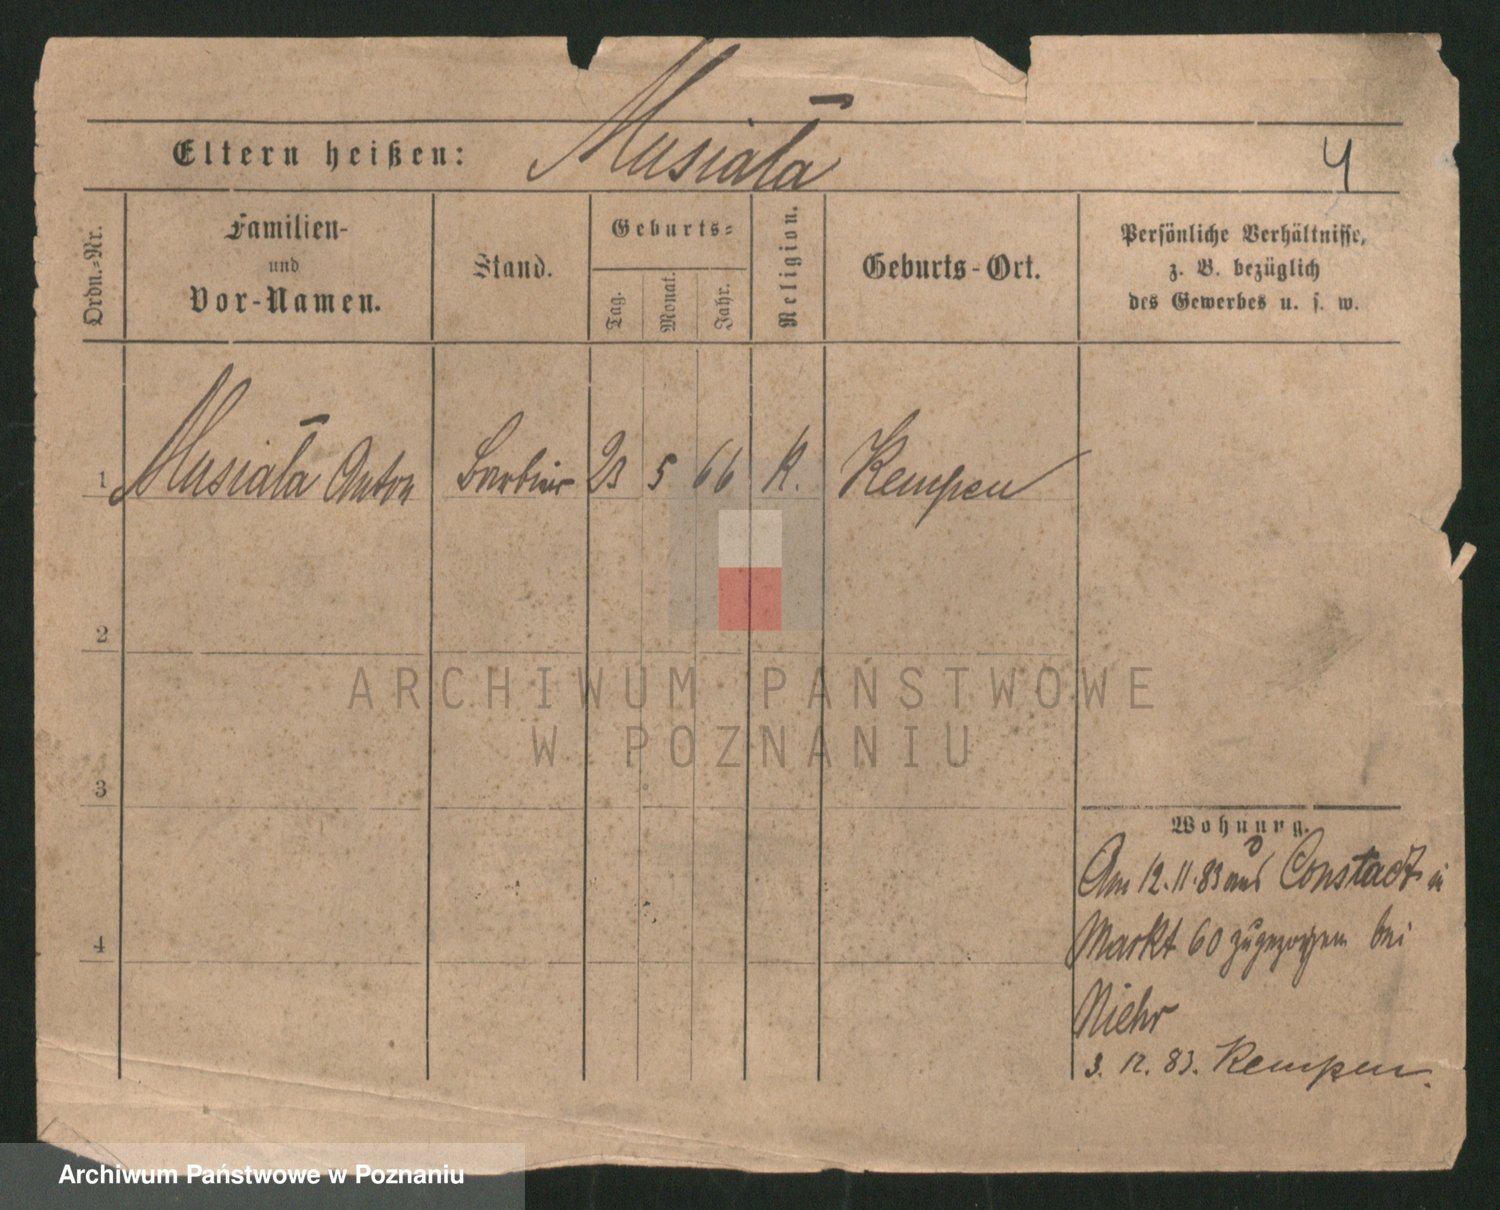 Musiała
Eltern heißen:
4
Ordn.-Nr.
Familien-
und
Vor-Namen.
Stand.
Geburts-
Tag.
Monat.
Jahr.
Religion.
Geburts-Ort.
Persönliche Verhältnisse,
z. B. bezüglich
des Gewerbes u. s. w.
1 Musiała Anton Barbier 23 5 66 K. Kempen
2
3
4
Wohnung.
Am 12.11.83 aus Constadt in
Markt 60 zugezogen bei
Niehr
3. 12. 83. Kempen.
ARCHIWUM PAŃSTWOWE
W POZNANIU
Archiwum Państwowe w Poznaniu